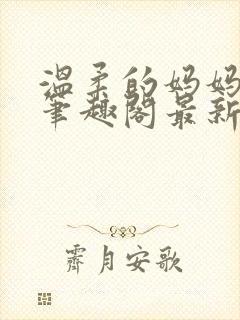 温柔的妈妈
笔趣阁最新
霁月安歌